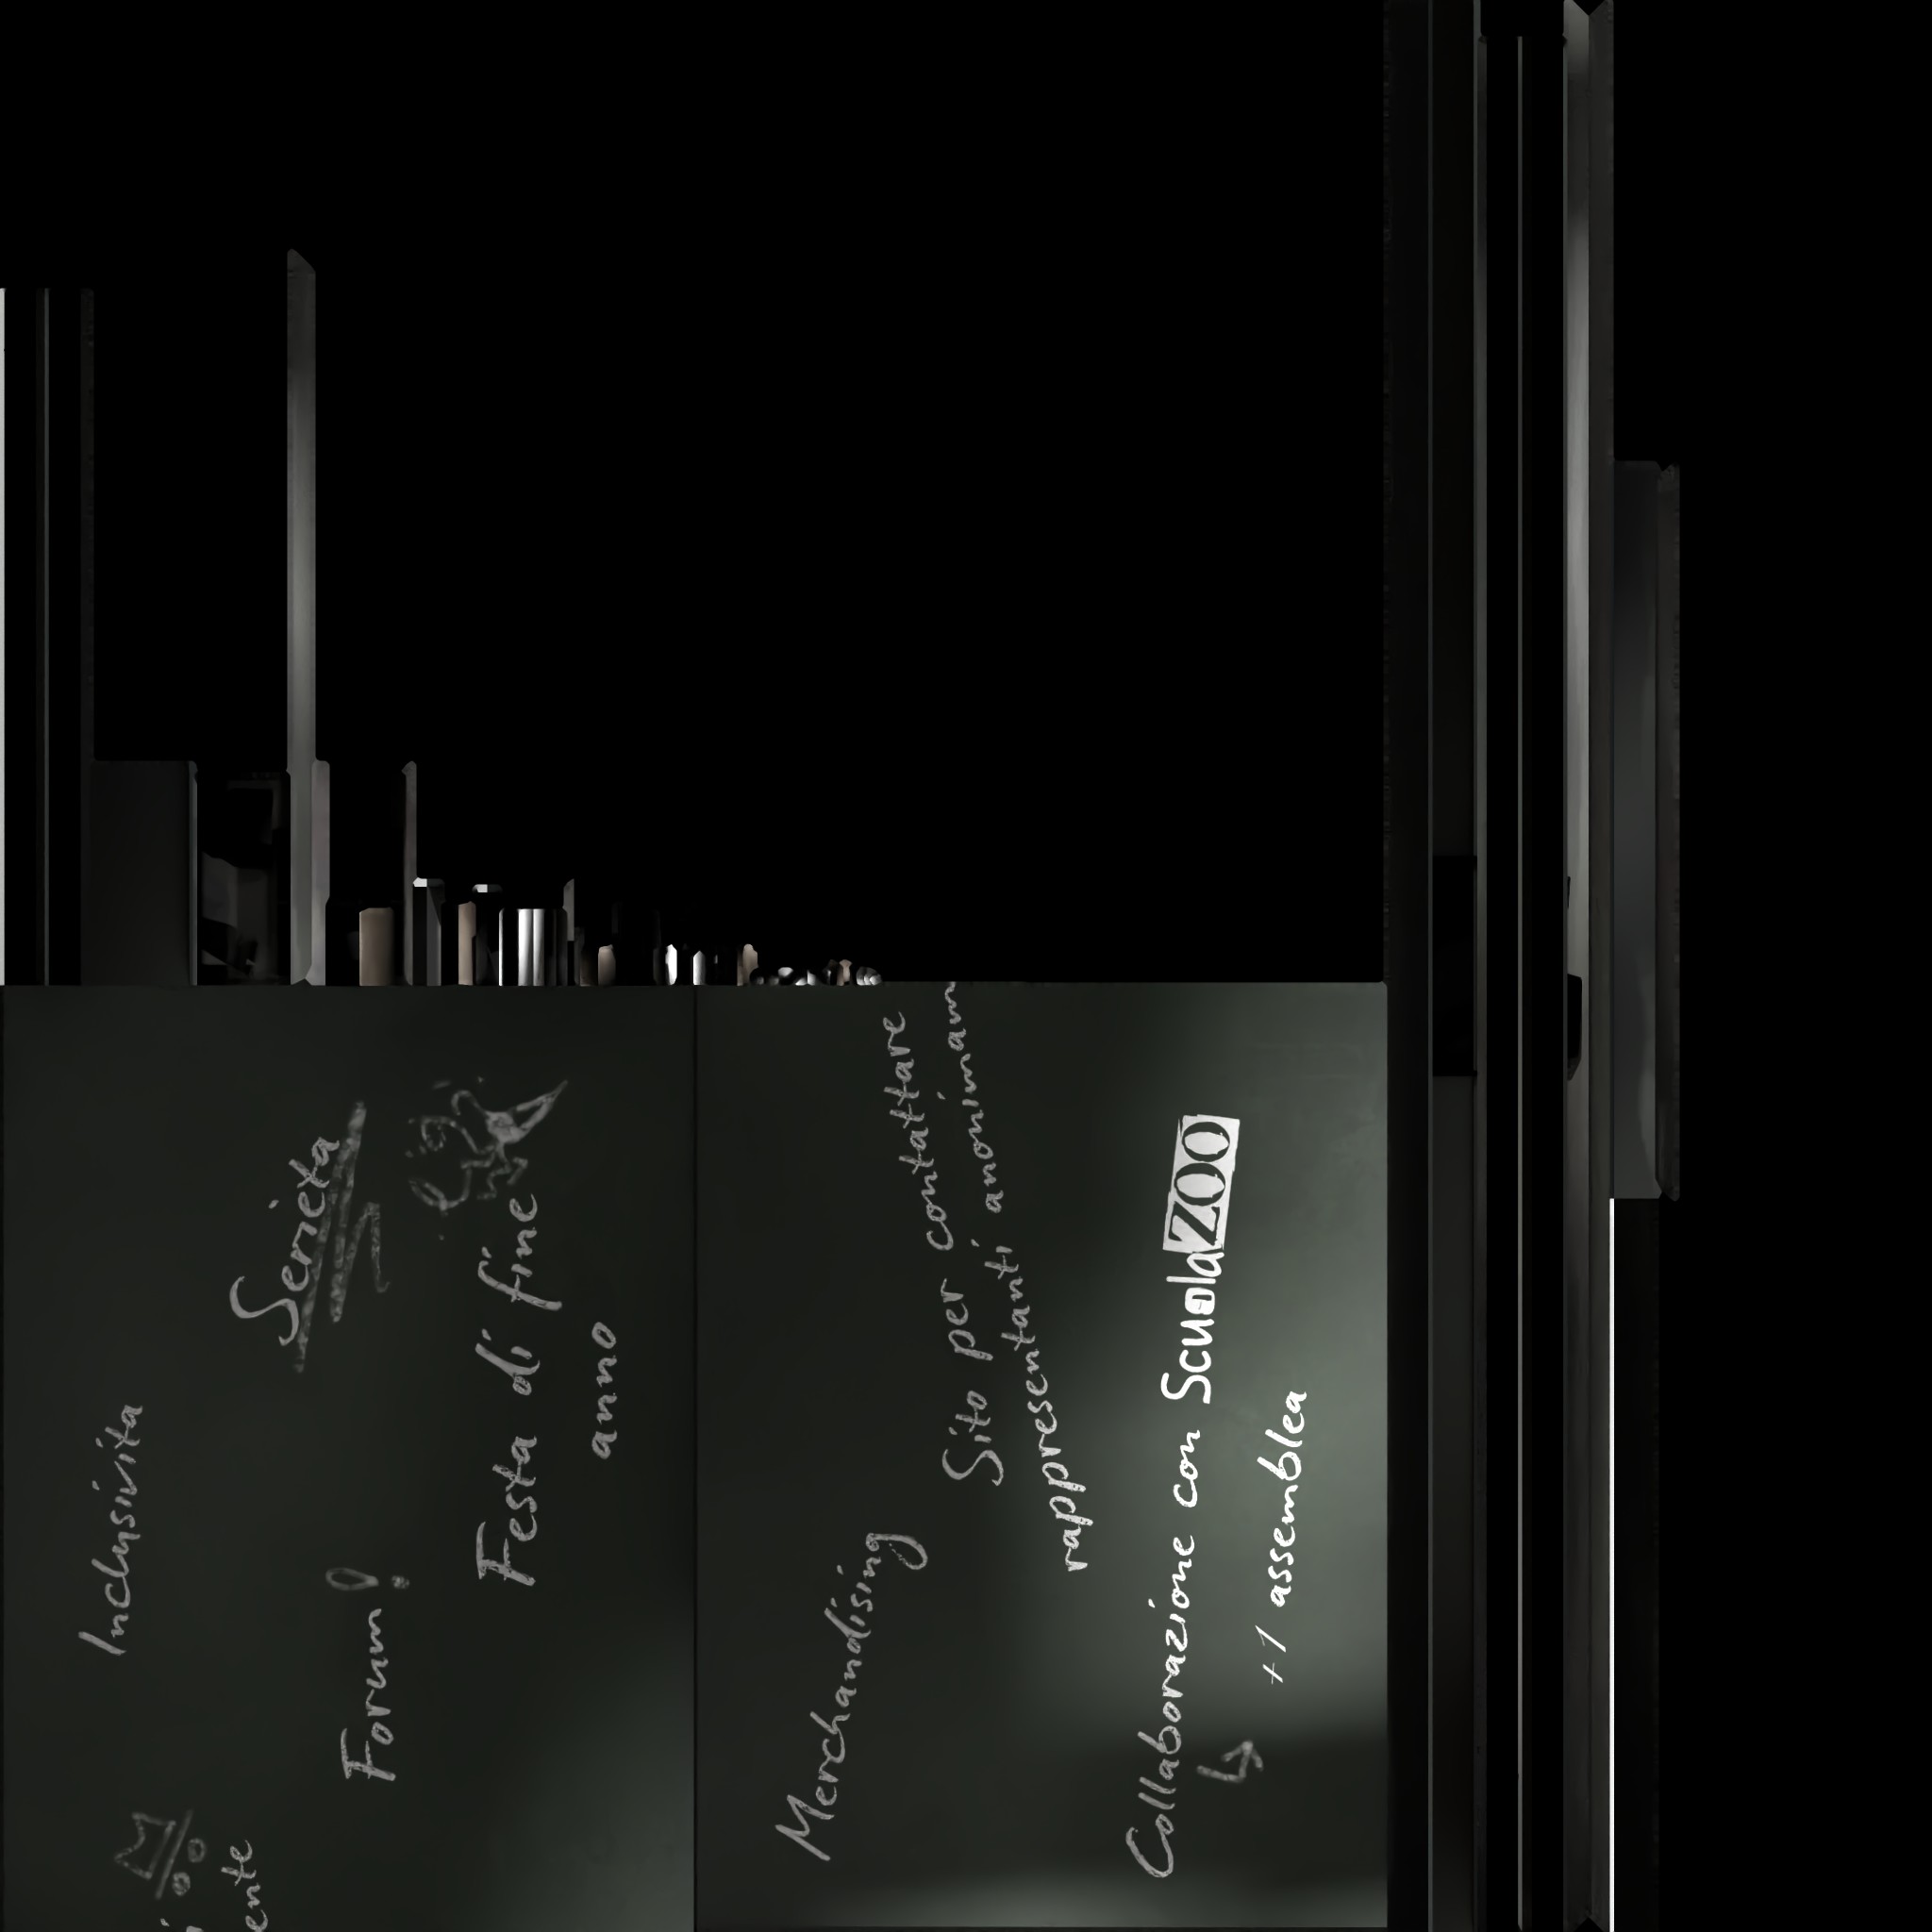 Inclusivita
Serieta
ente
Forum!
Festa di fine
anno
Merchandising
Sito per contattare
rappresentanti anonimam
Collaborazione con ScuolaZOO
↳ +1 assemblea